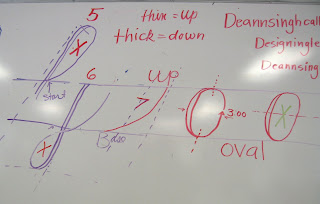 5
thin = up
thick = down
Deannsinghcall
Designingle
Deannsing
X
start
6
up
7
3:00
X
X
oval